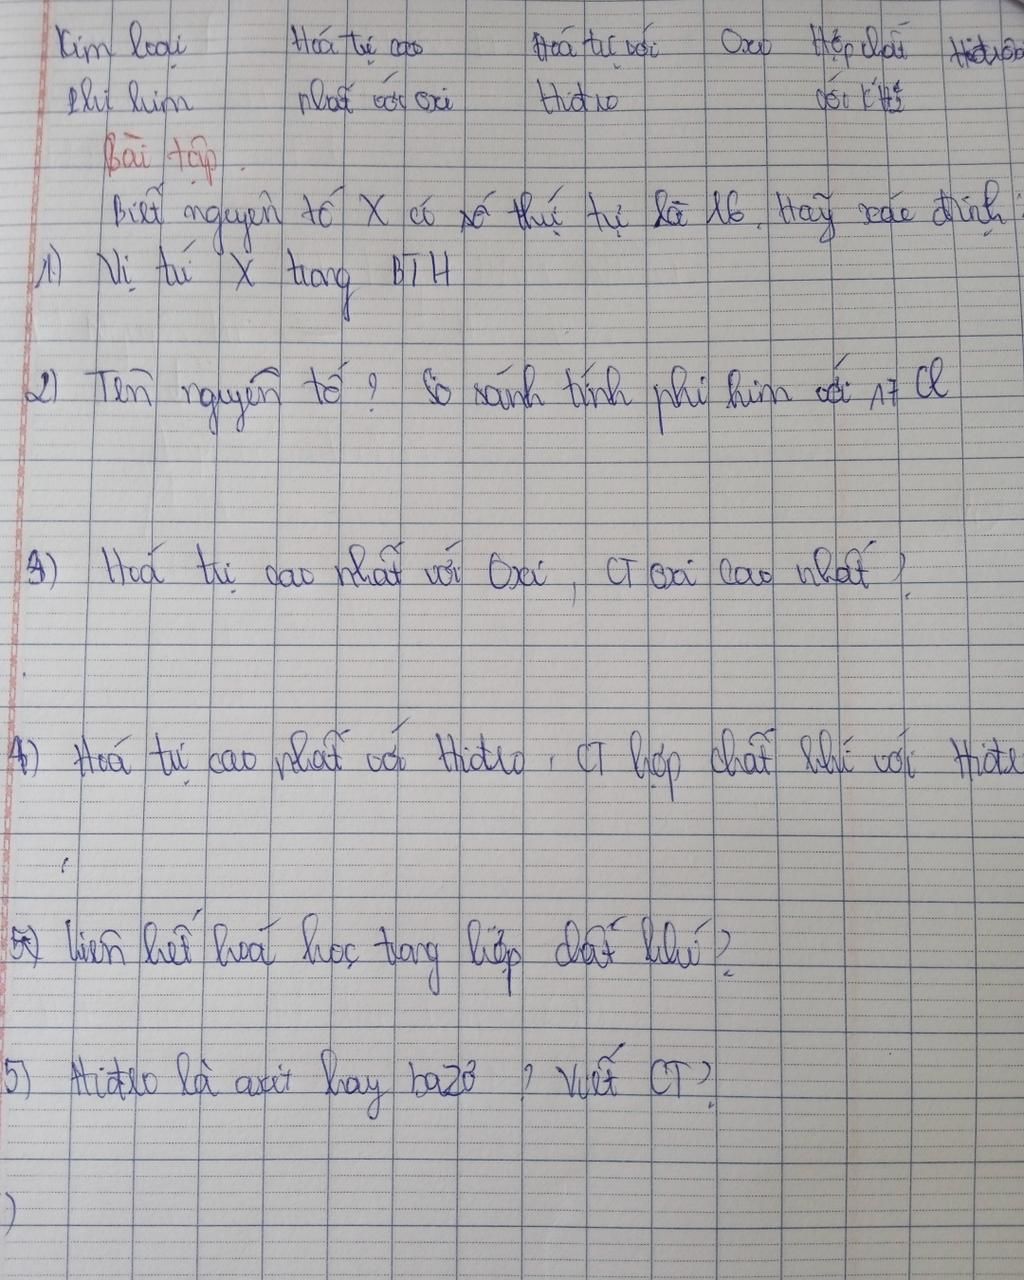 Kim loại Hoá trị cao Hoá trị với Oxit Hợp chất Hiđrôx
Phi kim nhất với oxi Hiđro với khí
Bài tập.
Biết nguyên tố X có số thứ tự là 16. Hãy xác định:
1) Vị trí X trong BTH
2) Tên nguyên tố? So sánh tính phi kim với 17 Cl
3) Hoá trị cao nhất với Oxi, CT oxi cao nhất?
4) Hoá trị cao nhất với Hiđro, CT hợp chất khí với Hiđr
5) liên kết hoá học trong hợp chất khí?
5) Hiđro là axit hay bazơ? Viết CT?
)